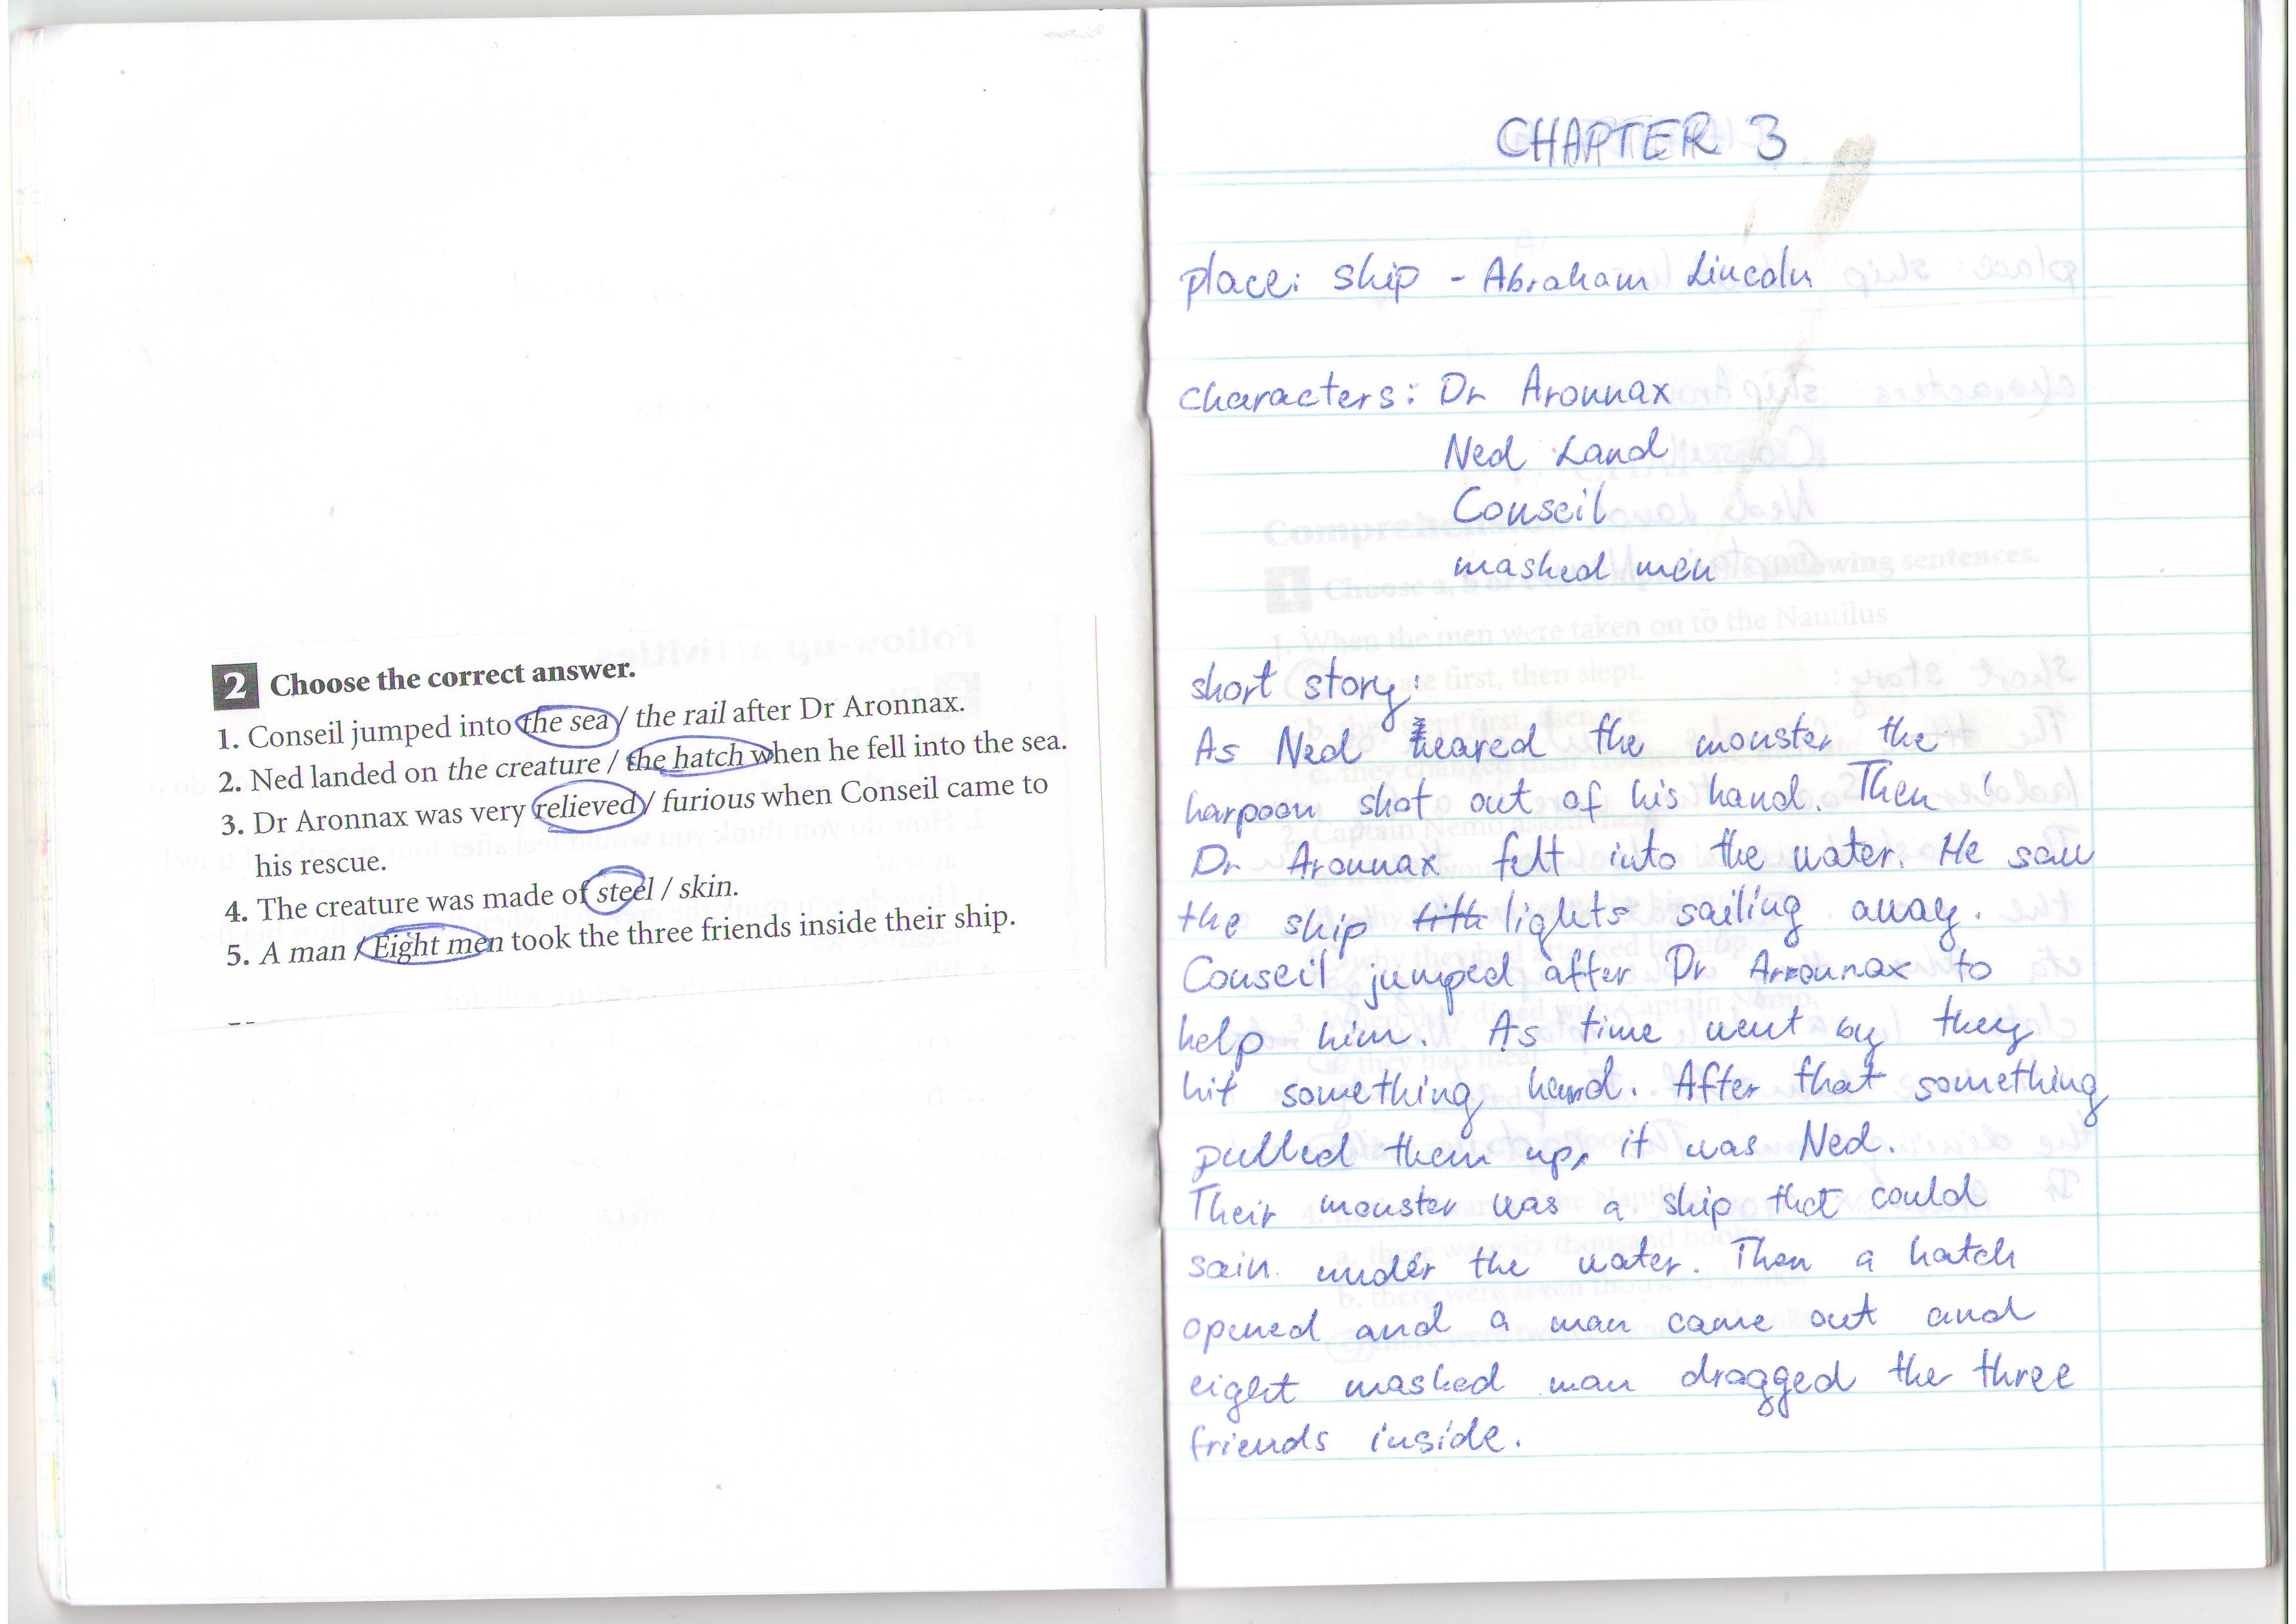 2 Choose the correct answer.
1. Conseil jumped into the sea / the rail after Dr Aronnax.
2. Ned landed on the creature / the hatch when he fell into the sea.
3. Dr Aronnax was very relieved / furious when Conseil came to
his rescue.
4. The creature was made of steel / skin.
5. A man / Eight men took the three friends inside their ship.
CHAPTER 3
place: ship - Abraham Lincoln
characters: Dr Aronnax
Ned Land
Conseil
masked men
short story:
As Ned heared the monster the
harpoon shot out of his hand. Then
Dr Aronnax felt into the water. He saw
the ship lights sailing away.
Conseil jumped after Dr Arronnax to
help him. As time went by they
hit something hard. After that something
pulled them up, it was Ned.
Their monster was a ship that could
sain under the water. Then a hatch
opened and a man came out and
eight masked man dragged the three
friends inside.